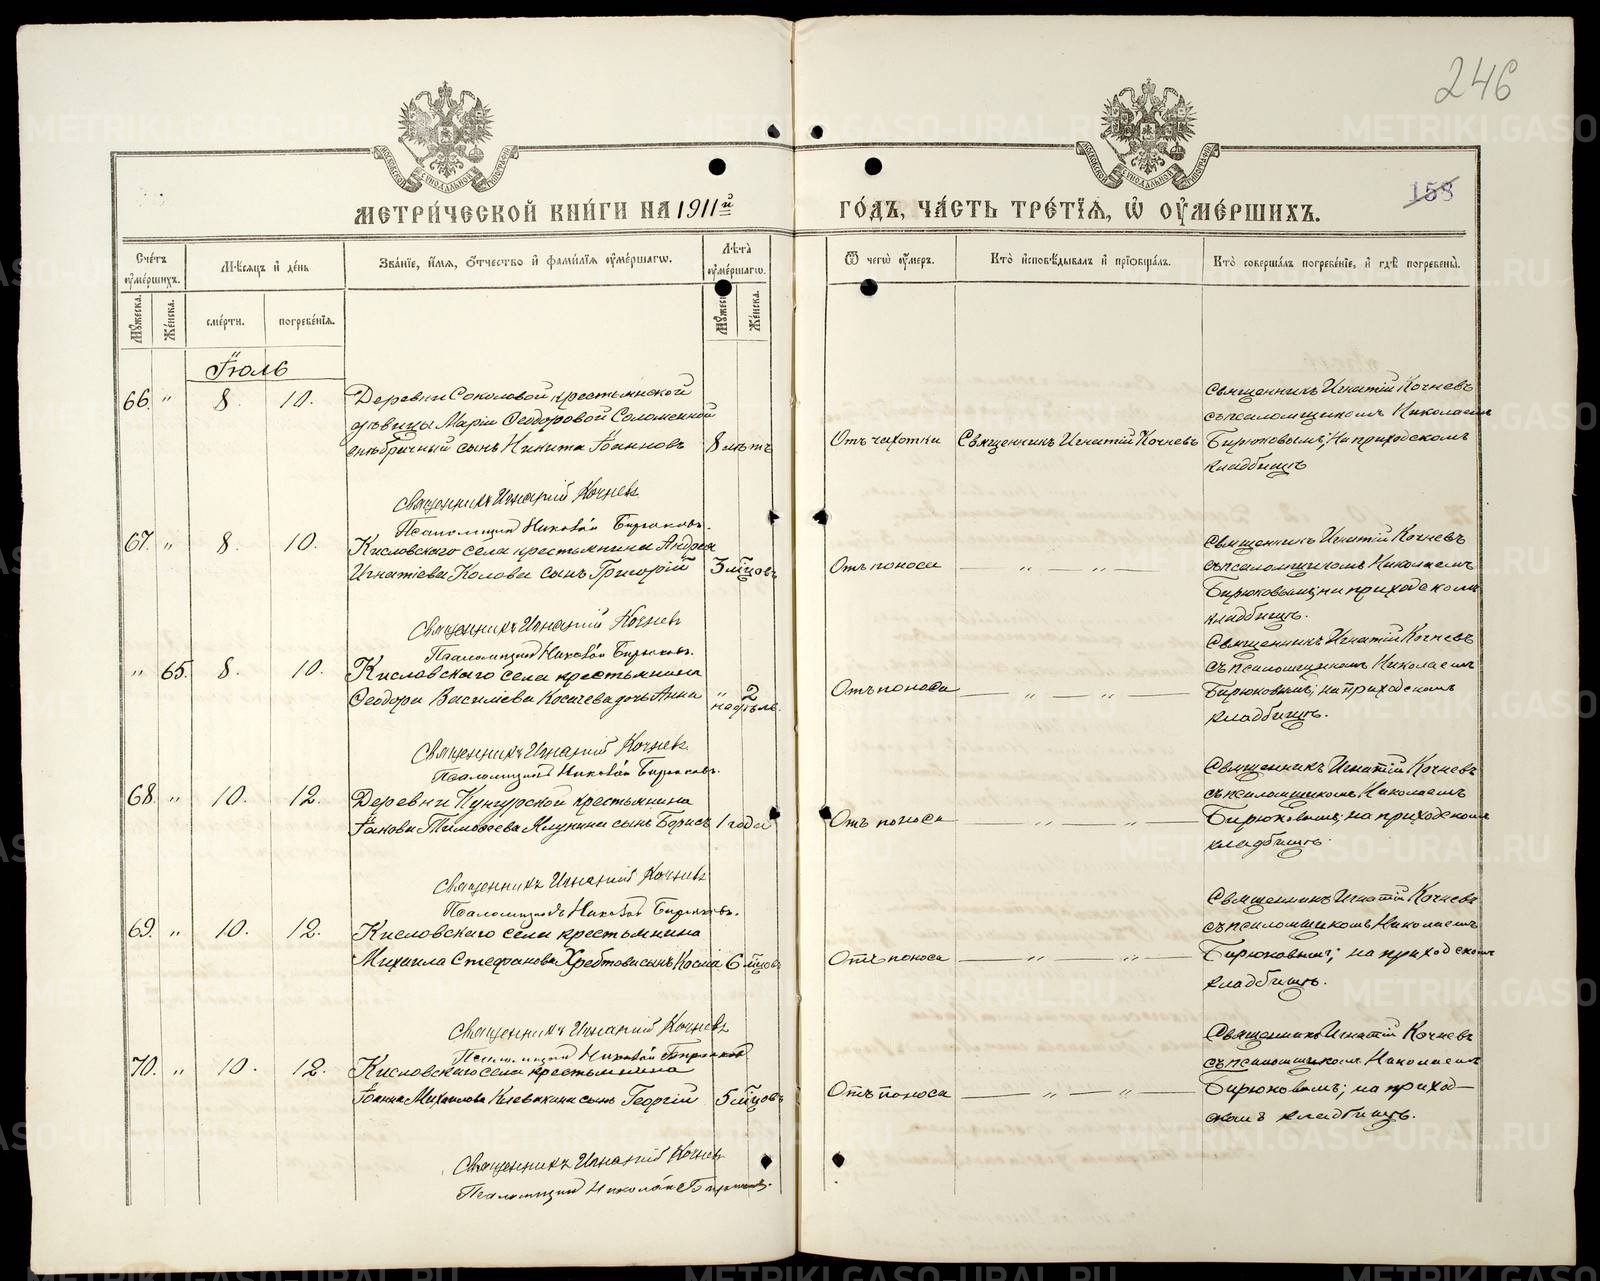 246
158
МЕТРИЧЕСКОЙ КНИГИ НА 1911й ГОДЪ, ЧАСТЬ ТРЕТІЯ, Ѡ ОУМЕРШИХЪ.
Счетъ оумершихъ.
Мѣсяцъ и день
Званіе, имя, отчество и фамилія оумершагѡ.
Лѣта оумершагѡ.
Ѿ чегѡ оумеръ.
Кто исповѣдывалъ и пріобщалъ.
Кто совершалъ погребеніе, и гдѣ погребены.
Мужеска.
Женска.
смерти.
погребенія.
Мужеска.
Женска.
Іюль
66. " 8. 10.
Деревни Соколовой крестьянской
дѣвицы Маріи Ѳеодоровой Соломенной
внѣбрачный сынъ Никита Іоанновъ
8 лѣтъ
Отъ чахотки
Священникъ Игнатій Кочневъ
Священникъ Игнатій Кочневъ
съ псаломщикомъ Николаемъ
Бирюковымъ; на приходскомъ
кладбищѣ
Священникъ Игнатій Кочневъ
Псаломщикъ Николай Бирюковъ.
67. " 8. 10.
Кисловскаго села крестьянина Андрея
Игнатіева Колова сынъ Григорій
3 мѣцовъ
Отъ поноса
— " — " —
Священникъ Игнатій Кочневъ
съ псаломщикомъ Николаемъ
Бирюковымъ; на приходскомъ
кладбищѣ.
Священникъ Игнатій Кочневъ
Псаломщикъ Николай Бирюковъ.
" 65. 8. 10.
Кисловскаго села крестьянина
Ѳеодора Василіева Косачева дочь Анна
" 2
недѣль.
Отъ поноса
— " — " —
Священникъ Игнатій Кочневъ
съ псаломщикомъ Николаемъ
Бирюковымъ; на приходскомъ
кладбищѣ.
Священникъ Игнатій Кочневъ
Псаломщикъ Николай Бирюковъ.
68. " 10. 12.
Деревни Кунгурской крестьянина
Іакова Тимоѳеева Ялунина сынъ Борисъ
1 года
Отъ поноса
— " — " —
Священникъ Игнатій Кочневъ
съ псаломщикомъ Николаемъ
Бирюковымъ; на приходскомъ
кладбищѣ.
Священникъ Игнатій Кочневъ
Псаломщикъ Николай Бирюковъ.
69. " 10. 12.
Кисловскаго села крестьянина
Михаила Стефанова Хребтова сынъ Косма
6 мѣцовъ
Отъ поноса
— " — " —
Священникъ Игнатій Кочневъ
съ псаломщикомъ Николаемъ
Бирюковымъ; на приходскомъ
кладбищѣ.
Священникъ Игнатій Кочневъ
Псаломщикъ Николай Бирюковъ
70. " 10. 12.
Кисловскаго села крестьянина
Іоанна Михаилова Клевакина сынъ Георгій
5 мѣцовъ
Отъ поноса
— " — " —
Священникъ Игнатій Кочневъ
съ псаломщикомъ Николаемъ
Бирюковымъ; на приход-
скомъ кладбищѣ.
Священникъ Игнатій Кочневъ
Псаломщикъ Николай Бирюковъ.
METRIKI.GASO-URAL.RU